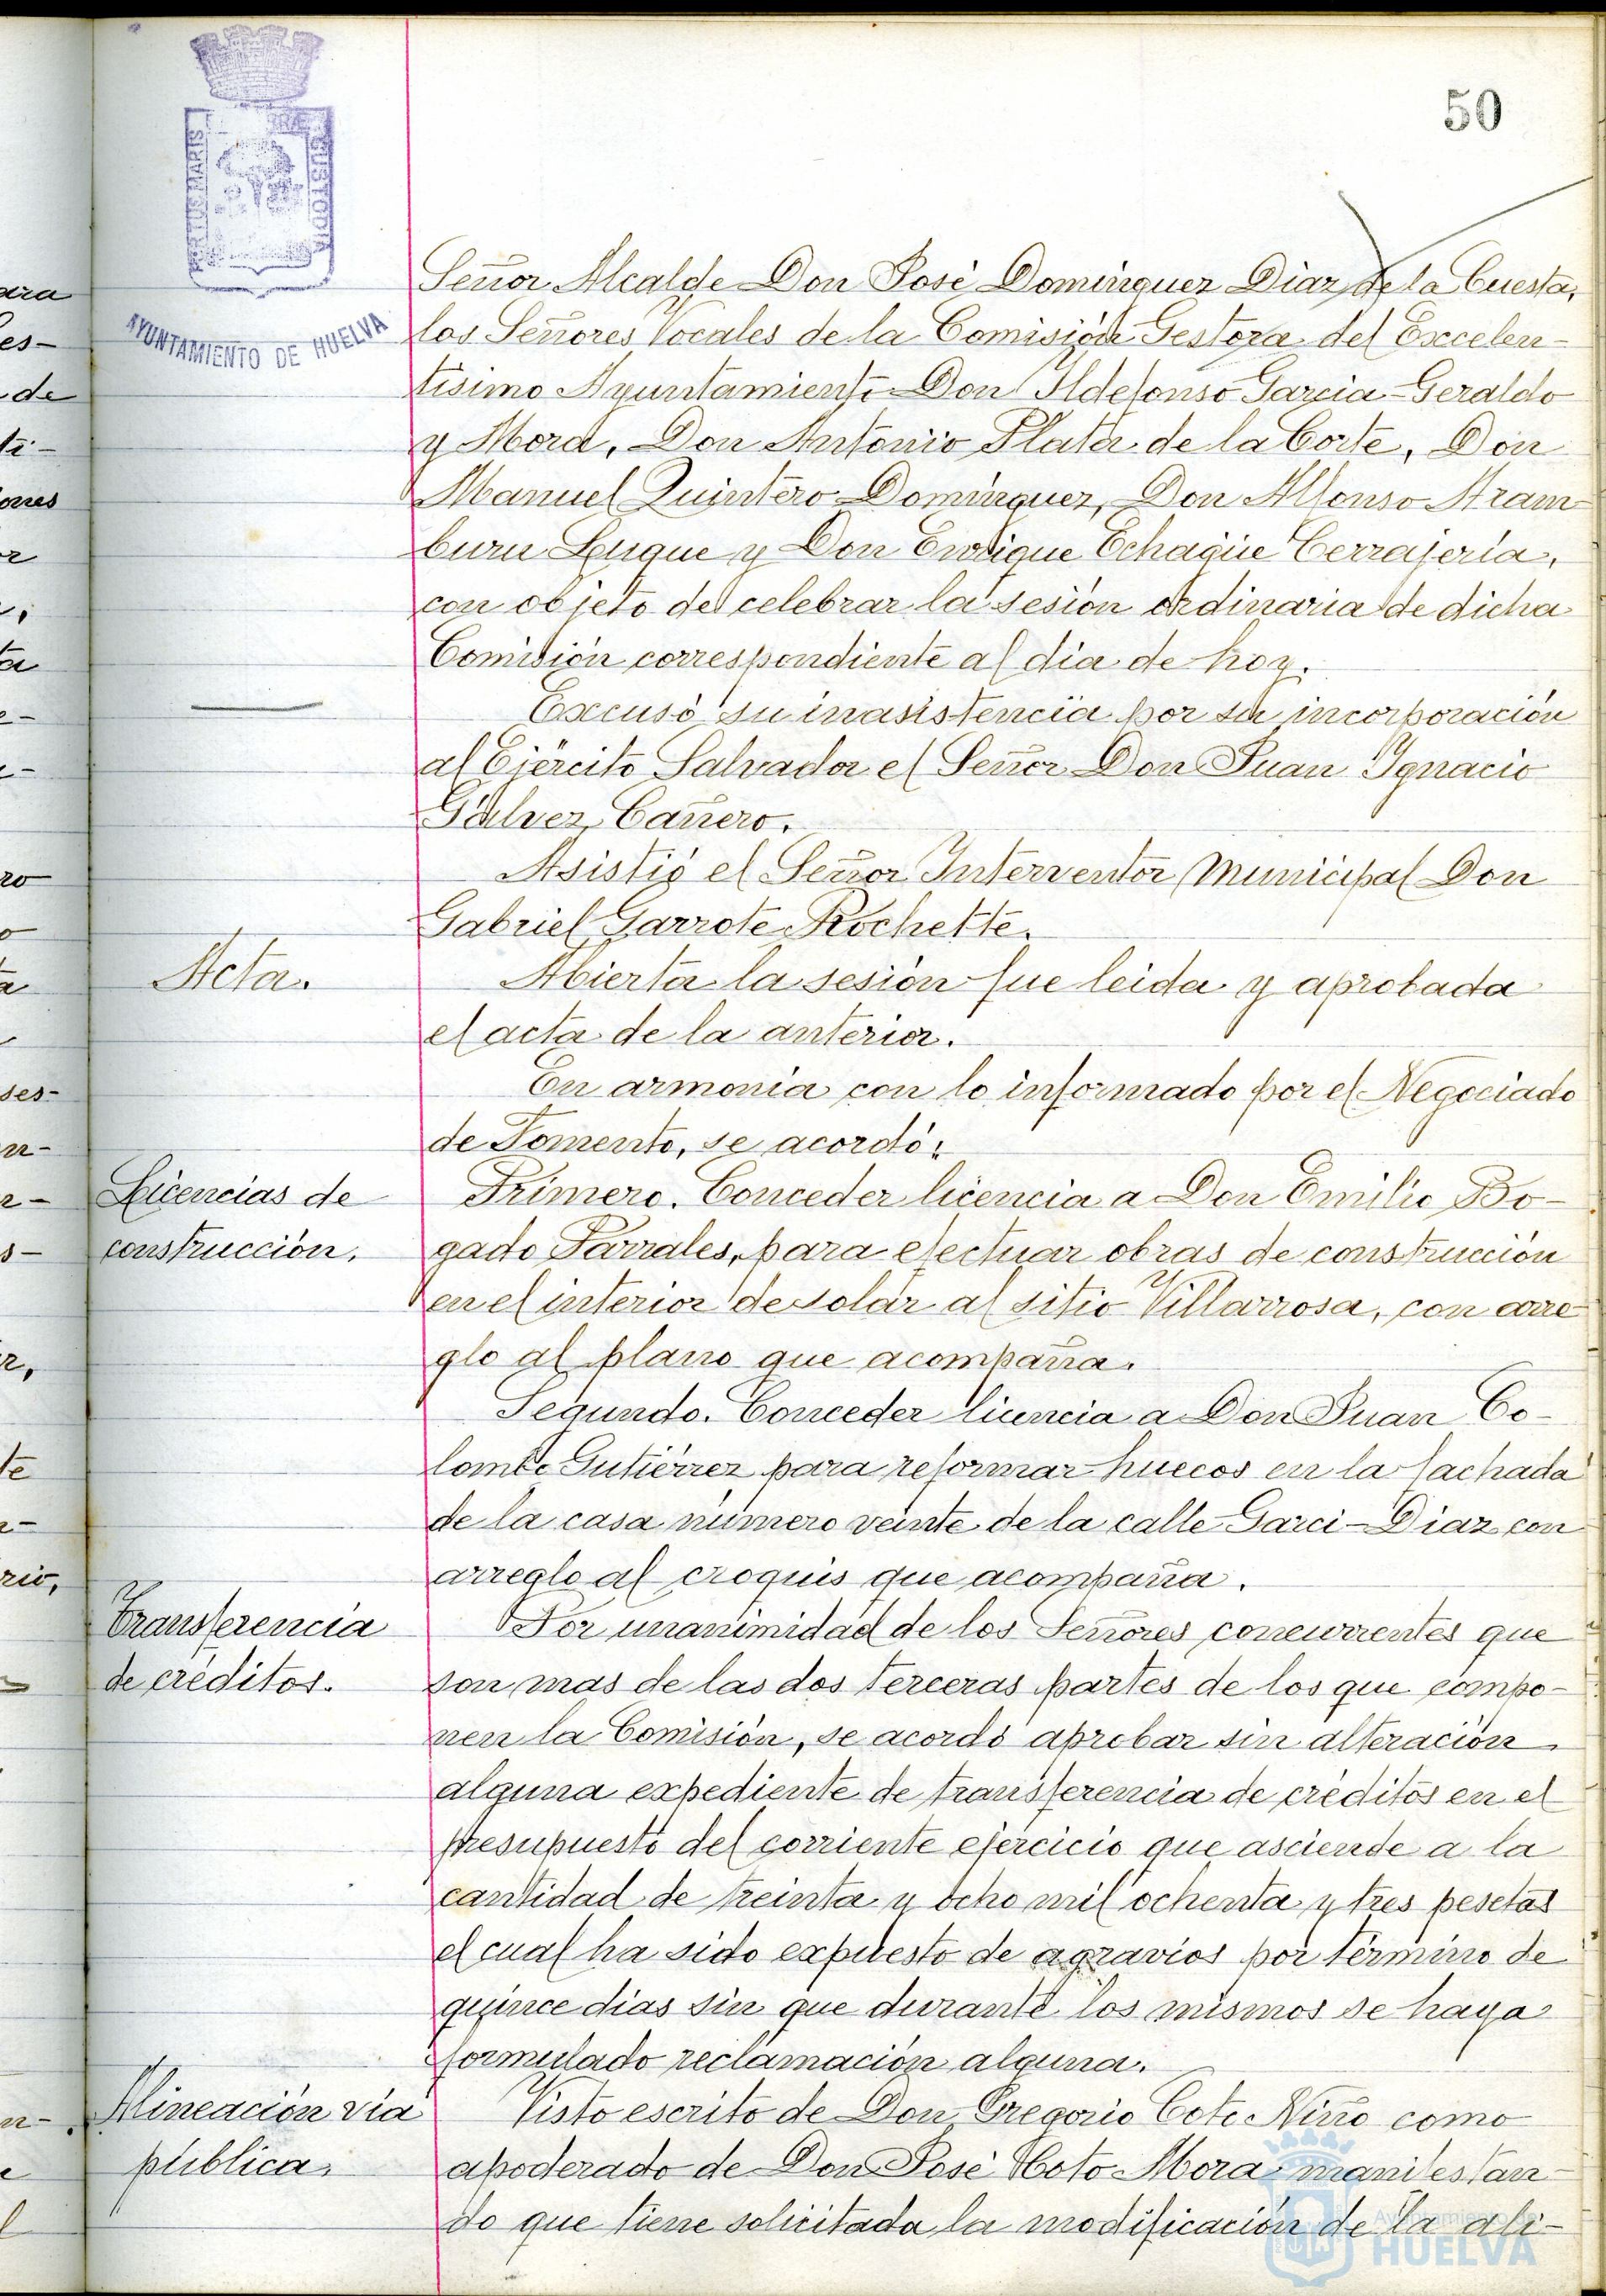 50
PORTUS MARIS
CUSTODIA
AYUNTAMIENTO DE HUELVA
Señor Alcalde Don José Dominguez Diaz de la Cuesta,
los Señores Vocales de la Comisión Gestora del Excelen-
tisimo Ayuntamiento Don Ildefonso Garcia-Geraldo
y Mora, Don Antonio Plata de la Corte, Don
Manuel Quintero Dominguez, Don Alfonso Aram-
buru Luque y Don Enrique Echagüe Cerrajería,
con objeto de celebrar la sesión ordinaria de dicha
Comisión correspondiente al dia de hoy.
Excusó su inasistencia por su incorporación
al Ejército Salvador el Señor Don Juan Ignacio
Gálvez Cañero.
Asistió el Señor Interventor Municipal Don
Gabriel Garrote Rochette.
Acta.
Abierta la sesión fue leida y aprobada
el acta de la anterior.
En armonia con lo informado por el Negociado
de Fomento, se acordó:
Licencias de
construcción.
Primero. Conceder licencia a Don Emilio Bo-
gado Parrales, para efectuar obras de construcción
en el interior de solar al sitio Villarrosa, con arre-
glo al plano que acompaña.
Segundo. Conceder licencia a Don Juan Co-
lombo Gutiérrez para reformar huecos en la fachada
de la casa número veinte de la calle Garci-Diaz con
arreglo al croquis que acompaña.
Transferencia
de créditos.
Por unanimidad de los Señores concurrentes que
son mas de las dos terceras partes de los que compo-
nen la Comisión, se acordó aprobar sin alteración
alguna expediente de transferencia de créditos en el
presupuesto del corriente ejercicio que asciende a la
cantidad de treinta y ocho mil ochenta y tres pesetas
el cual ha sido expuesto de agravios por término de
quince dias sin que durante los mismos se haya
formulado reclamación alguna.
Alineación vía
pública.
Visto escrito de Don Gregorio Coto Niño como
apoderado de Don José Coto Mora manifestan-
do que tiene solicitada la modificación de la ali-
Ayuntamiento de
HUELVA